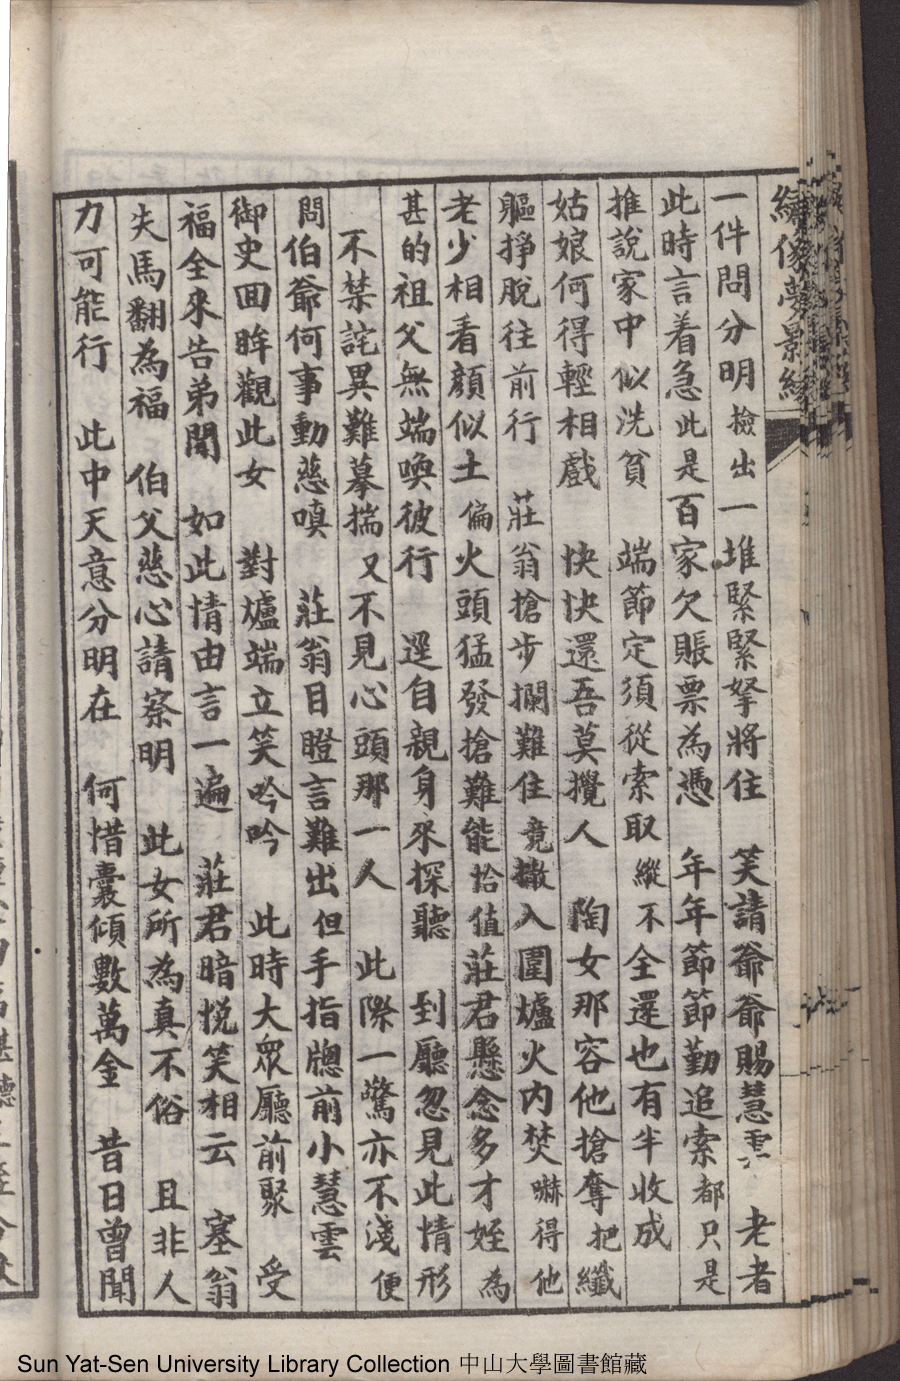 繡像夢影緣
一件問分明 檢出一堆緊緊拏將住 笑請爺爺賜慧雲 老者
此時言着急 此是百家欠賬票為憑 年年節節勤追索 都只是
推說家中似洗貧 端節定須從索取 縱不全還也有半收成
姑娘何得輕相戲 快快還吾莫攪人 陶女那容他搶奪 把纖
軀掙脫往前行 莊翁搶步攔難住 竟撇入圍爐火內焚 嚇得他
老少相看顏似土 偏火頭猛發搶難能 恰值莊君懸念多才姪 為
甚的祖父無端喚彼行 逕自親身來探聽 到廳忽見此情形
不禁詫異難摹揣 又不見心頭那一人 此際一驚亦不淺 便
問伯爺何事動慈嗔 莊翁目瞪言難出 但手指牕前小慧雲
御史回眸觀此女 對爐端立笑吟吟 此時大眾廳前聚 受
福全來告弟聞 如此情由言一遍 莊君暗悅笑相云 塞翁
失馬翻為福 伯父慈心請察明 此女所為真不俗 且非人
力可能行 此中天意分明在 何惜囊傾數萬金 昔日曾聞
Sun Yat-Sen University Library Collection 中山大學圖書館藏